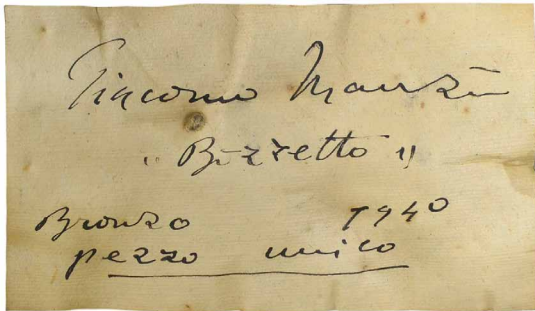 Giacomo Manzù
"Bozzetto"
Bronzo 1940
pezzo unico